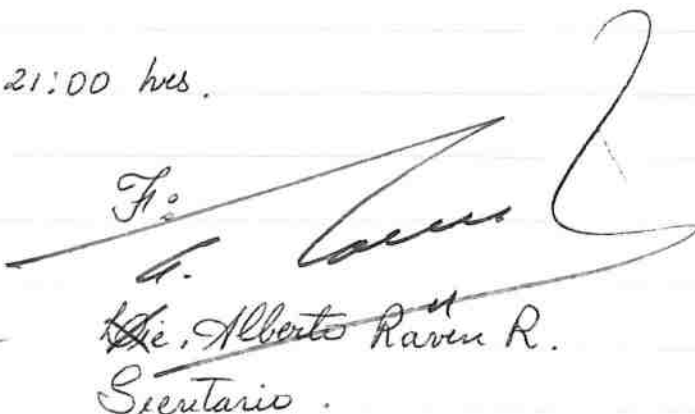 21:00 hrs.
F:
Lic. Alberto Raven R.
Secretario.